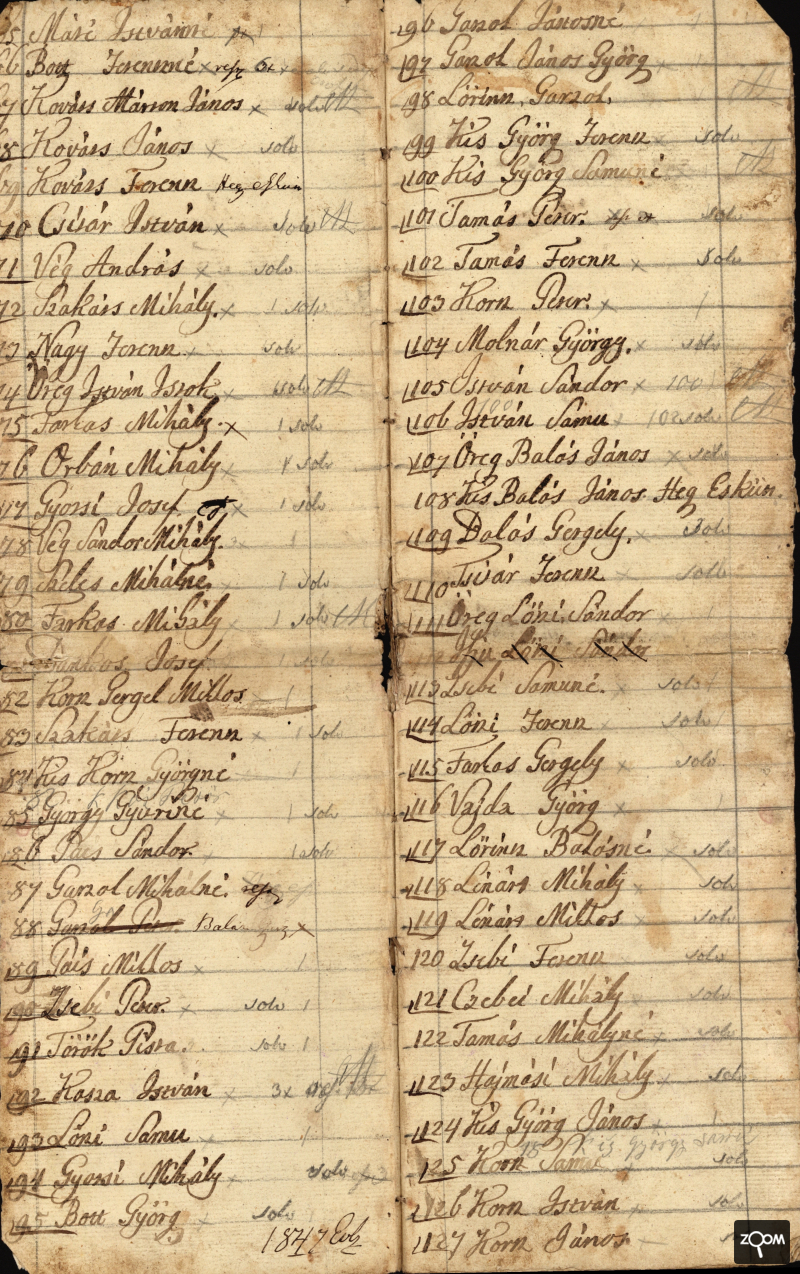 65 Máré Istvánné
66 Bott Ferencné x refz 5x
67 Kováts Márton János x solv
68 Kováts János x solv
69 Kováts Ferenn
70 Csiśár István x solv
71 Vég András x solv
72 Szakáts Mihály. x 1 solv
73 Nagy Ferenn x solv
74 Öreg István Istók x solv
75 Farkas Mihály. x 1 solv
76 Orbán Mihály x 1 solv
77 Gyorsi Josef x 1 solv
78 Vég Sándor Mihály. 1
79 Szeles Mihálné. 1 solv
80 Farkas Mihály 1 solv
Josef. solv
82 Korn Gergel Miklos 1
83 Szakáts Ferenn x 1 solv
84 Kis Korn Györgné 1
85 György Gyuriné 1 solv
86 Pais Sándor. 1 solv
87 Garzol Mihálné. refz
88 Garzol Peter.
89 Pais Miklos x 1
190 Zsebi Peter. solv 1
191 Török Pista. solv 1
192 Kasza István x 3x
193 Löni Samu 1
194 Gyorsi Mihály x solv
195 Bott Györg x solv
1847
196 Garzol Jánosné 1
197 Garzol János Györg 1
98 Lörinn Garzol.
99 Kis Györg Ferenn x solv
100 Kis Györg Samuné
101 Tamás Peter. solv
102 Tamás Ferenn x solv
103 Korn Peter. x 1
104 Molnár György. x solv
105 István Sándor x 100
106 István Samu x 102 solv
107 Öreg Balás János x solv
108 Kis Balás János Heg Eskün.
109 Balás Gergely. solv
110 Tsiśár Ferenn solv
111 Öreg Löni Sándor 1
Löni Sándor
113 Zsebi Samuné. solv
114 Löni Ferenn x solv
115 Farkas Gergely x solv
116 Vajda Györg x 1
117 Lörinn Balásné x solv
118 Lénárt Mihály x solv
119 Lénárt Miklos x solv
120 Zsebi Ferenn solv
121 Czebei Mihály x solv
122 Tamás Mihályné x solv
123 Hajmási Mihály. x solv
124 Kis Györg János x 1
Kis György
125 Korn Samu solv
126 Korn István solv
127 Korn János
ZOOM